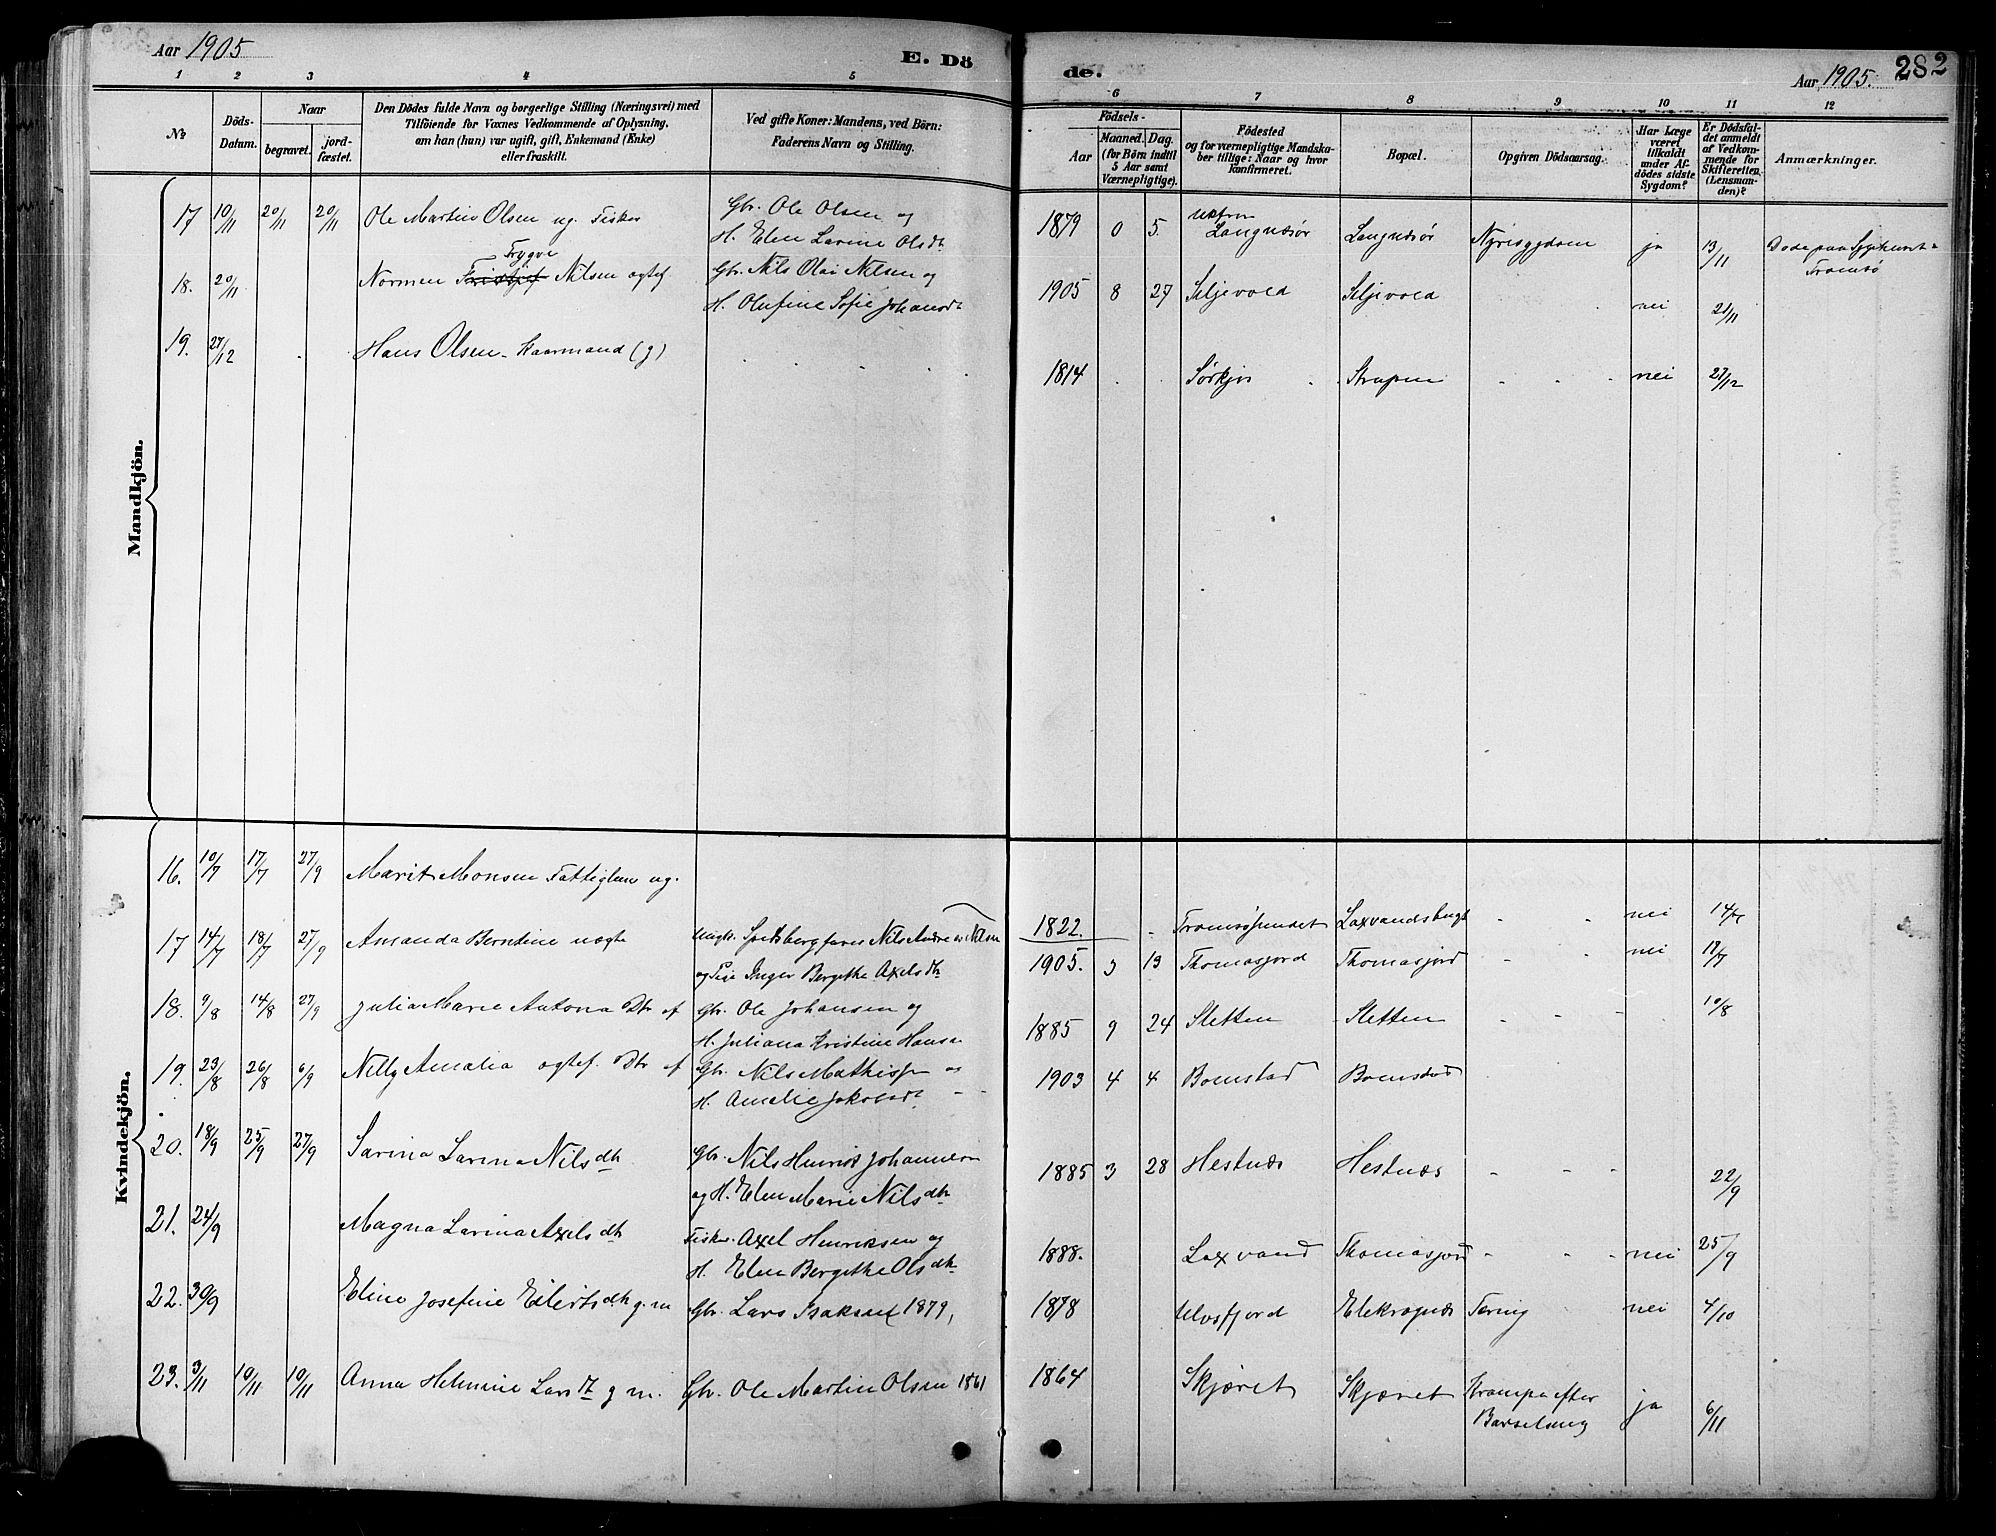 Aar 1905
E. Dö
de.
Aar 1905.
282
1 2 3 4 5 6 7 8 9 10 11 12
No
Döds-
Datum.
Naar
begravet.
jord-
fæstet.
Den Dödes fulde Navn og borgerlige Stilling (Næringsvei) med
Tilföiende for Voxnes Vedkommende af Oplysning.
om han (hun) var ugift, gift, Enkemand (Enke)
eller fraskilt.
Ved gifte Koner: Mandens, ved Börn:
Faderens Navn og Stilling.
Födsels-
Aar
Maaned. Dag.
(for Börn indtil
5 Aar samt
Værnepligtige).
Födested
og for værnepligtige Mandska-
ber tillige: Naar og hvor
konfirmeret.
Bopæl.
Opgiven Dödsaarsag.
Har Læge
været
tilkaldt
under Af-
dödes sidste
Sygdom?
Er Dödsfal-
det anmeldt
af Vedkom-
mende for
Skifteretten
(Lensman-
den)?
Anmærkninger.
Mandkjön.
17 10/11 20/11 20/11 Ole Martin Olsen ug. Fisker Gbr. Ole Olsen og
H. Elen Larine Olsdt. 1879 0 5. Langnæsør Langnæsør Nyresygdom ja 13/11 Døde paa Sygehuset
Tromsø
Trygve
18. 20/11 Normen Nilsen ægtef Gbr. Nils Olai Nilsen og
H. Olufine Sofie Johansdt 1905 8 27 Seljevold Seljevold nei 21/11
19. 27/12 Hans Olsen - Kaarmand (g) 1814 Sørkjos Strupen nei 27/12
Kvindekjön.
16. 10/7 17/7 27/9 Marit Monsen Fattiglem ug. 1822. Tromsøsundet Laxvandsbugt nei 14/7
17 14/7 18/7 27/9 Amanda Berntine uægte Ungk. Spetsbergfarer Nils Andreas Nilsen
og Pige Inger Bergethe Axelsdt 1905. 13 Thomasjord Thomasjord nei 18/7
18. 9/8 14/8 27/9 Julia Marie Antona Dtr af Gbr. Ole Johansen og
H. Juliana Kristine Hansd 1885 9 24 Sletten Sletten 10/8
19. 23/8 26/8 6/9 Nelly Amalia ægtef. Dtr af Gbr. Nils Mathissen og
H. Amalie Jakobsdt 1903 4 4 Bomstad Bomstad
20. 18/9 25/9 27/9 Sarina Larina Nilsdtr Gbr. Nils Henrik Johannesen
og H. Elen Marie Nilsdtr 1885 3 28 Hestnæs Hestnæs 22/9
21. 24/9 Magna Larina Axelsdtr Fisker Axel Henriksen og
H. Elen Bergethe Olsdtr 1888. Laxvand Thomasjord nei 25/9
22. 30/9 Eline Josefine Eilertsdtr g. m Gbr. Lars Isaksen 1879, 1878 Ulvsfjord Elekrognæs Tæring nei 4/10
23. 3/11 10/11 10/11 Anna Helmine Larsdt g m. Gbr. Ole Martin Olsen 1861 1864 Skjæret Skjæret Krampe efter
Barselseng ja 6/11